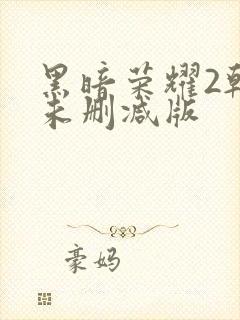 黑暗荣耀2韩
未删减版
豪妈